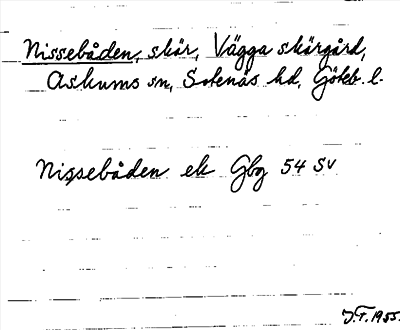 Nissebåden, skär, Vägga skärgård,
Askums sn, Sotenäs hd, Göteb. l.
Nissebåden ek Gbg 54 SV
J.T. 1955.